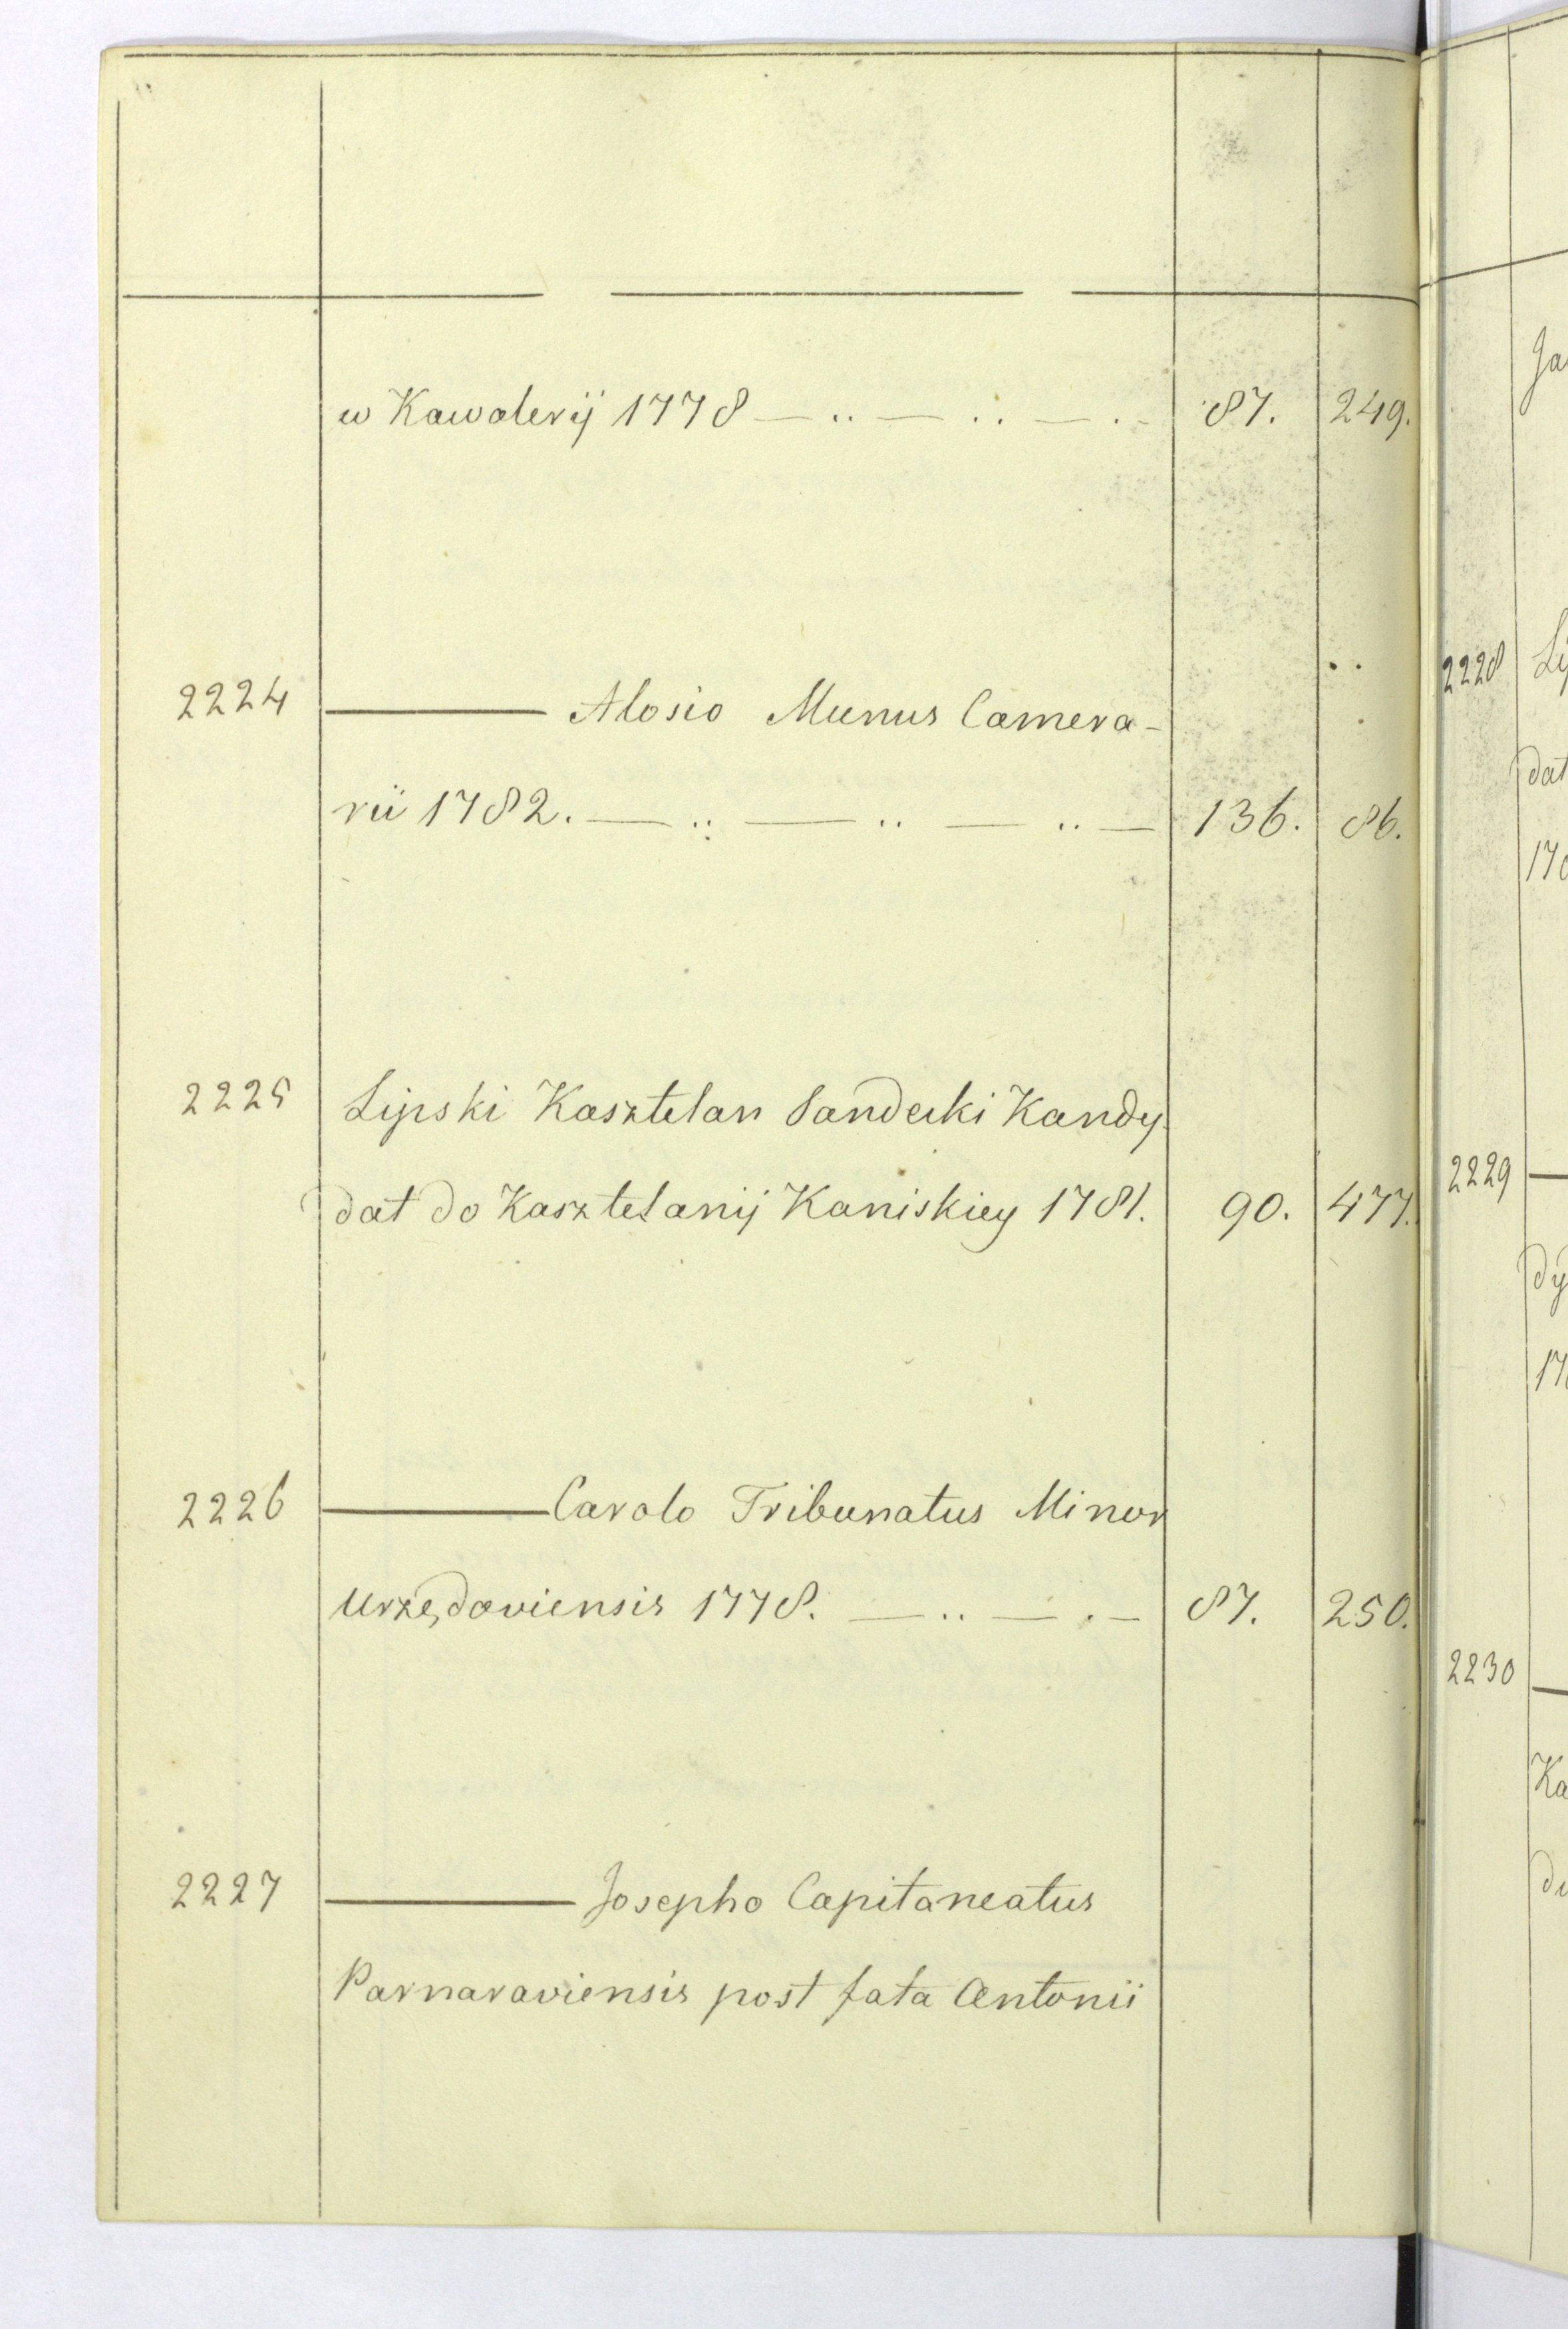 w Kawaleryj 1778 — .. — .. — . - 87. 249.
2224 ——— Alosio Munus Camera-
rii 1782. — .. — .. — .. — 136. 86.
2225 Lipski Kasztelan Sandecki Kandy-
dat do Kasztelanij Kaniskiey 1781. 90. 477.
2226 ——— Carolo Tribunatus Minor
Urzędoviensis 1778. — .. — . — 87. 250.
2227 ——— Josepho Capitaneatus
Parnaraviensis post fata Antonii
2228
dat
2229
dy
2230
Ka